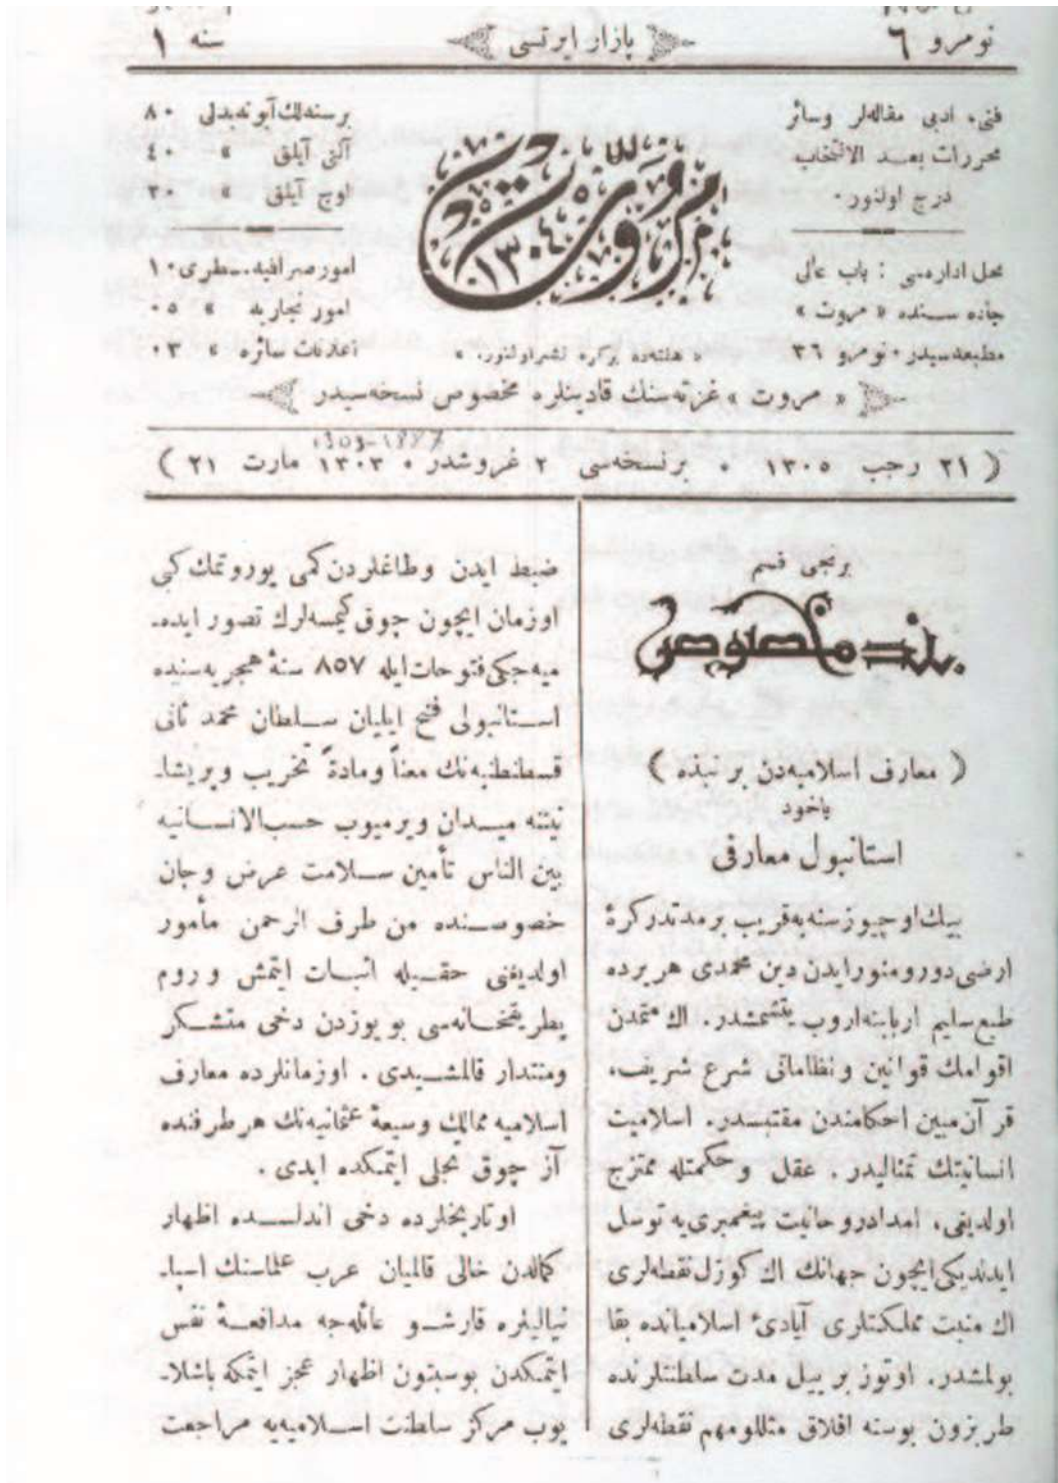 نومرو ٦
بازار ايرتسى
سنه ١
فنى، ادبى مقالەلر وسائر
محررات بعـد الانتخاب
درج اولنور ٠
محل ادارەسى : باب عالى
جادە سـندە « مروت »
مطبعەسيدر ٠ نومرو ٣٦
مروت
١٣٠٤
« هفتەدە بركرە نشر اولنور، »
برسنەلك آبونەبدلى ٨٠
آلتى آيلق » ٤٠
اوچ آيلق » ٢٠
امورصرافيە ـ سطرى ١٠
امور تجاريە » ٠٥
اعلانات سائرە » ٠٣
« مروت » غزتەسنك قادينلرە مخصوص نسخەسيدر
1303-1887
( ٢١ رجب ١٣٠٥ ٠ برنسخەسى ٢ غروشدر ٠ ١٣٠٣ مارت ٢١ )
برنجى قسم
بند مخصوص
( معارف اسلاميەدن بر نبذە )
ياخود
استانبول معارفى
بيك اوچيوز سنەيە قريب بر مدتدر كرۀ
ارضى دور ومنور ايدن دين محمدى هريردە
طبع سليم اربابنە اروب يتشمشدر. اك متمدن
اقوامك قوانين ونظاماتى شرع شريف،
قرآن مبين احكامندن مقتبسدر. اسلاميت
انسانيتك تمثاليدر . عقل وحكمتلە ممتزج
اولديغى، امداد روحانيت پيغمبرى يە توسل
ايدنديكى ايچون جهانك اك كوزل نقطەلرى
اك منبت مملكتلرى آبادىء اسلاميانده بقا
بولمشدر. اوتوز بر ييل مدت سلطنتلرندە
طربزون بوسنه افلاق مثللو مهم نقطەلرى
ضبط ايدن وطاغلردن كمى يوروتمك كبى
اوزمان ايچون چوق كيمسەلرك تصور ايدە‌ـ
ميەجكى فتوحات ايلە ٨٥٧ سنۀ هجريەسندە
اسـتانبولى فتح ايليان سـلطان محمد ثانى
قسطنطنيەنك معناً ومادةً تخريب وپريشا‌ـ
نيتنە ميـدان ويرميوب حسب‌الانسـانيە
بين الناس تأمين سـلامت عرض وجان
خصوصـندە من طرف الرحمن مأمور
اولديغنى حقـيلە اثبـات ايتمش وروم
پطريقخـانەسى بويوزدن دخى متشـكر
ومنتدار قالمشـيدى . اوزمانلردە معارف
اسلاميە ممالك وسيعۀ عثمانيەنك هرطرفندە
آز چوق تجلى ايتمكدە ايدى .
اوتاريخلردە دخى اندلسـدە اظهار
كمالدن خالى قالميان عرب علماسنك اسپا‌ـ
نياليلرە قارشـو عائلەجە مدافعـۀ نفس
ايتمكدن بوسبتون اظهار عجز ايتمكە باشلا‌ـ
يوب مركز سلطنت اسـلاميەيە مراجعت